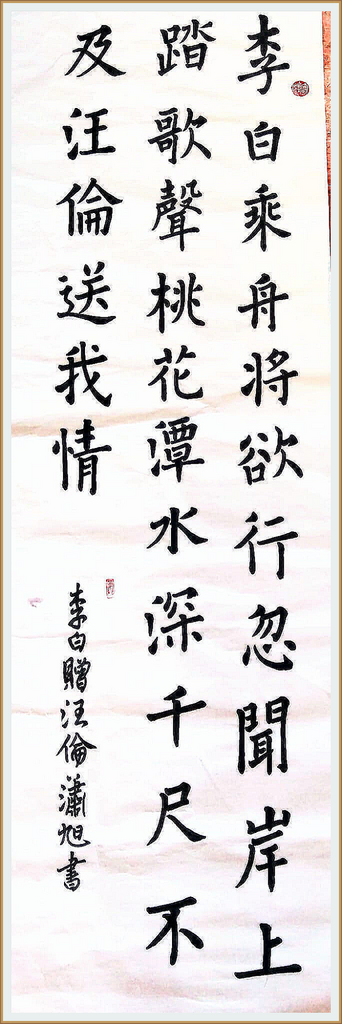 李白乘舟將欲行忽聞岸上
踏歌聲桃花潭水深千尺不
及汪倫送我情
李白贈汪倫瀟旭書